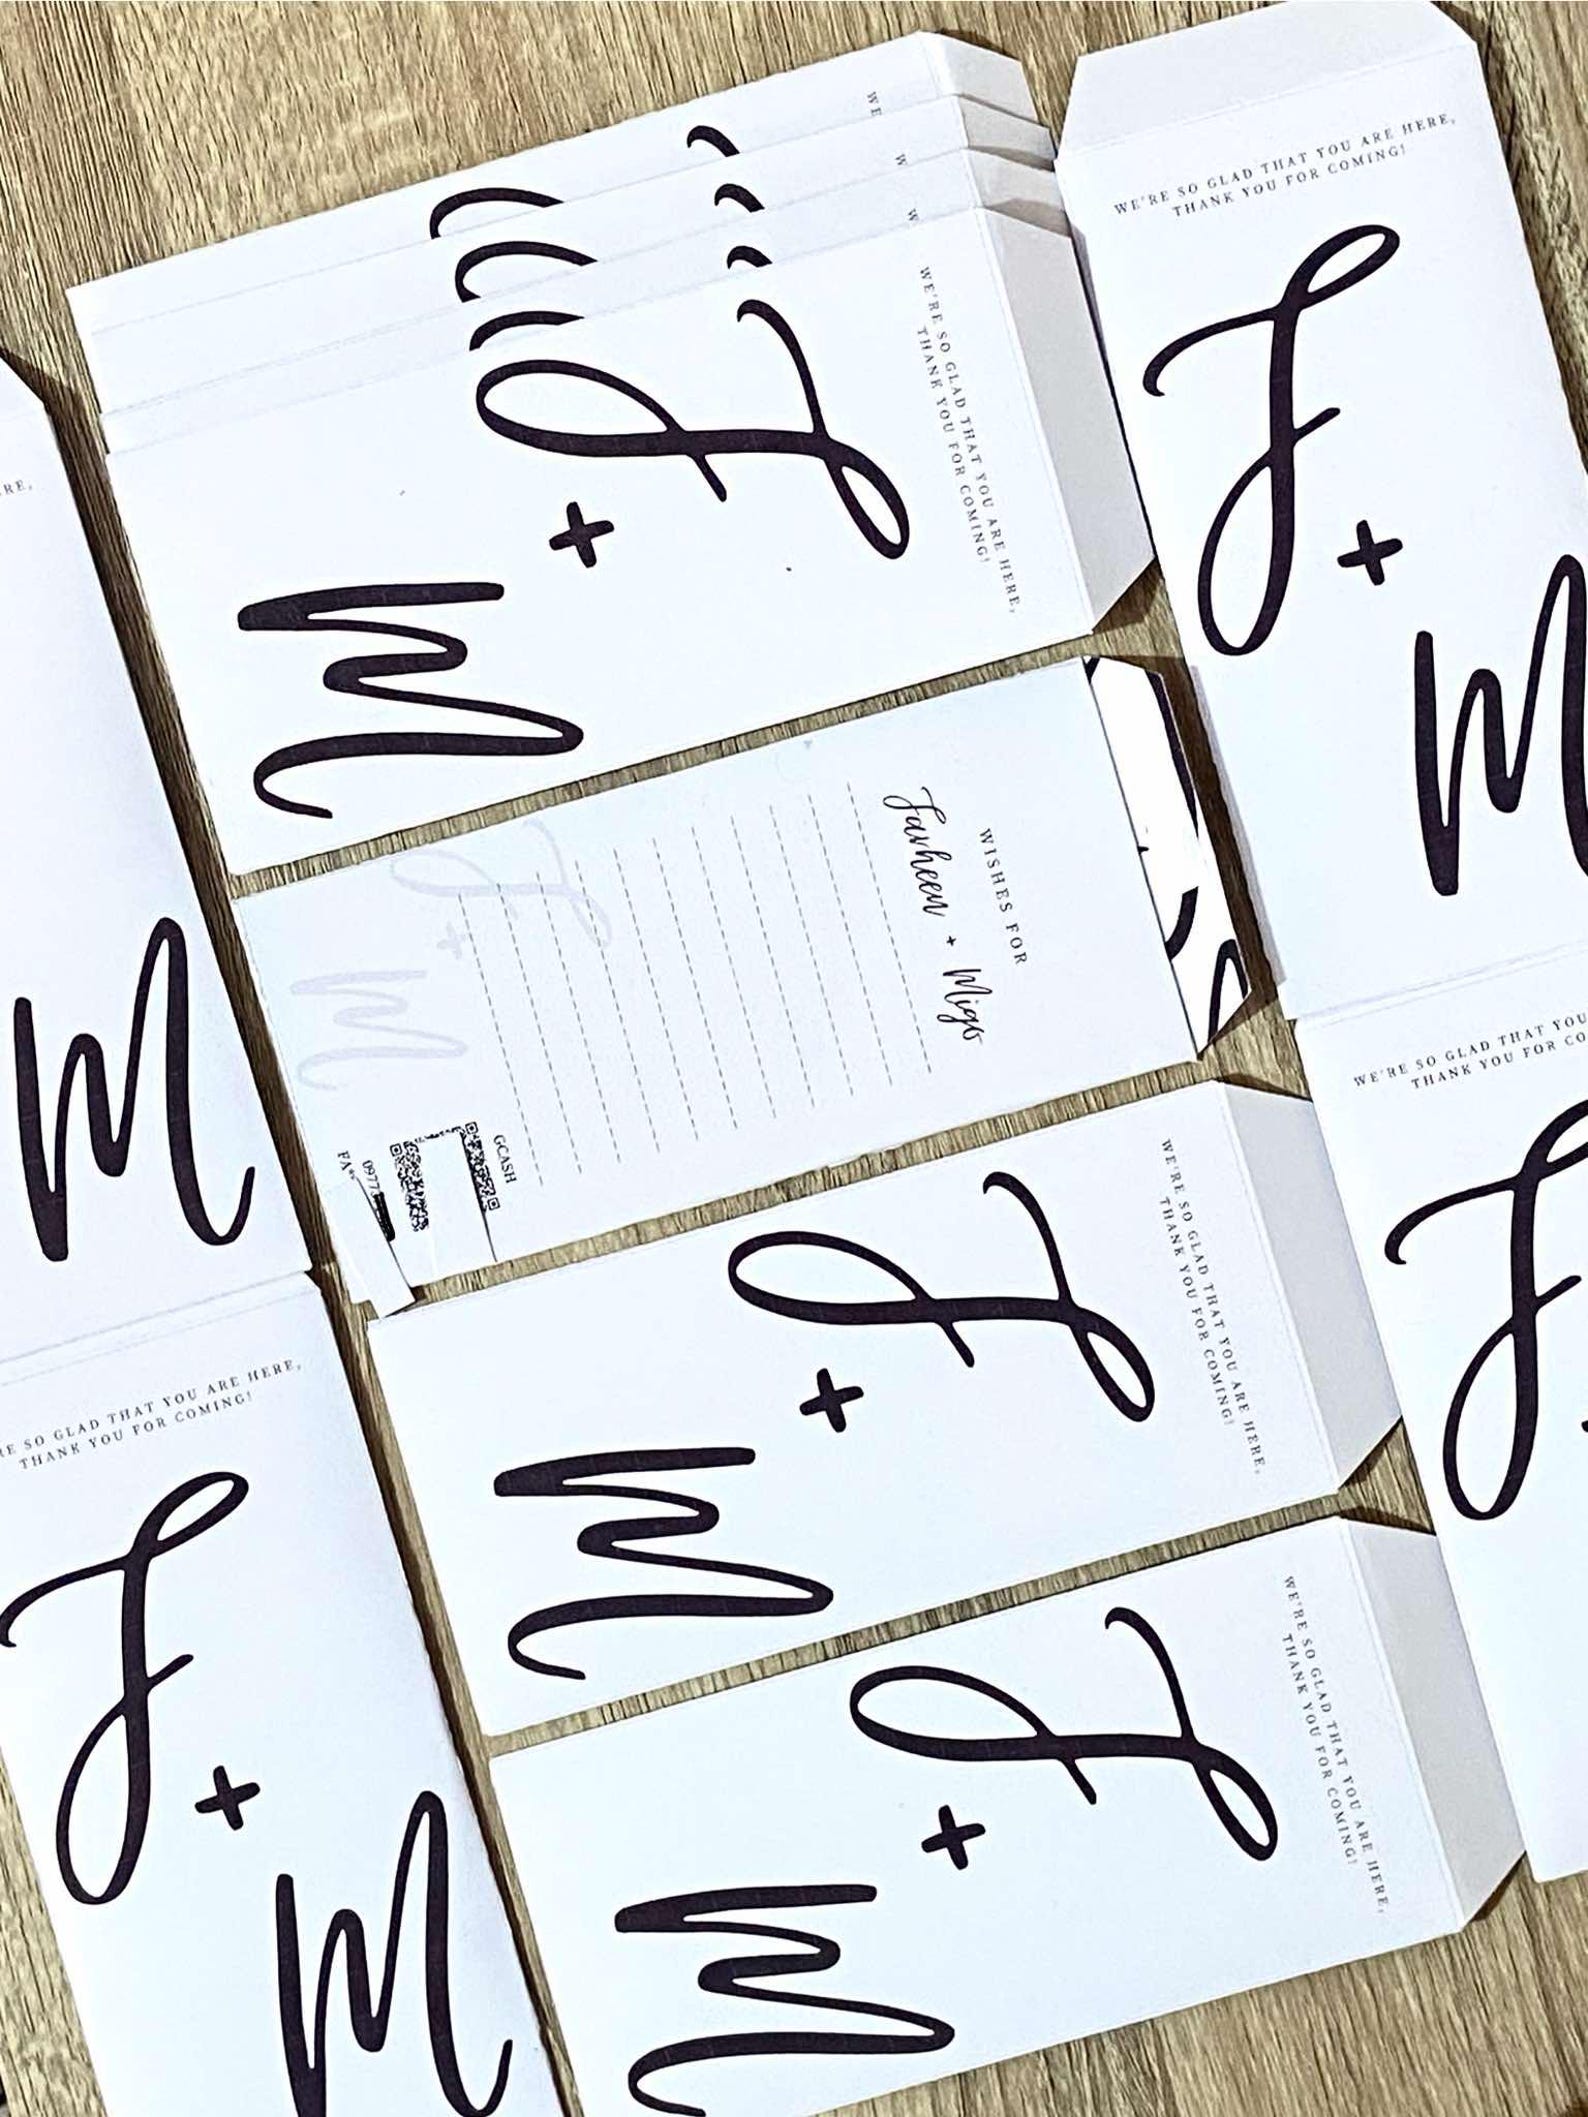 WE
W
W
WE'RE SO GLAD THAT YOU ARE HERE,
THANK YOU FOR COMING!
F
+
M
WE'RE SO GLAD THAT YOU ARE HERE,
THANK YOU FOR COMING!
F
+
M
RE,
M
WISHES FOR
Farheen + Migo
F
+
M
GCASH
0977
FA**
WE'RE SO GLAD THAT YOU
THANK YOU FOR CO
F
WE'RE SO GLAD THAT YOU ARE HERE,
THANK YOU FOR COMING!
F
+
M
RE SO GLAD THAT YOU ARE HERE,
THANK YOU FOR COMING!
F
+
M
WE'RE SO GLAD THAT YOU ARE HERE,
THANK YOU FOR COMING!
F
+
M